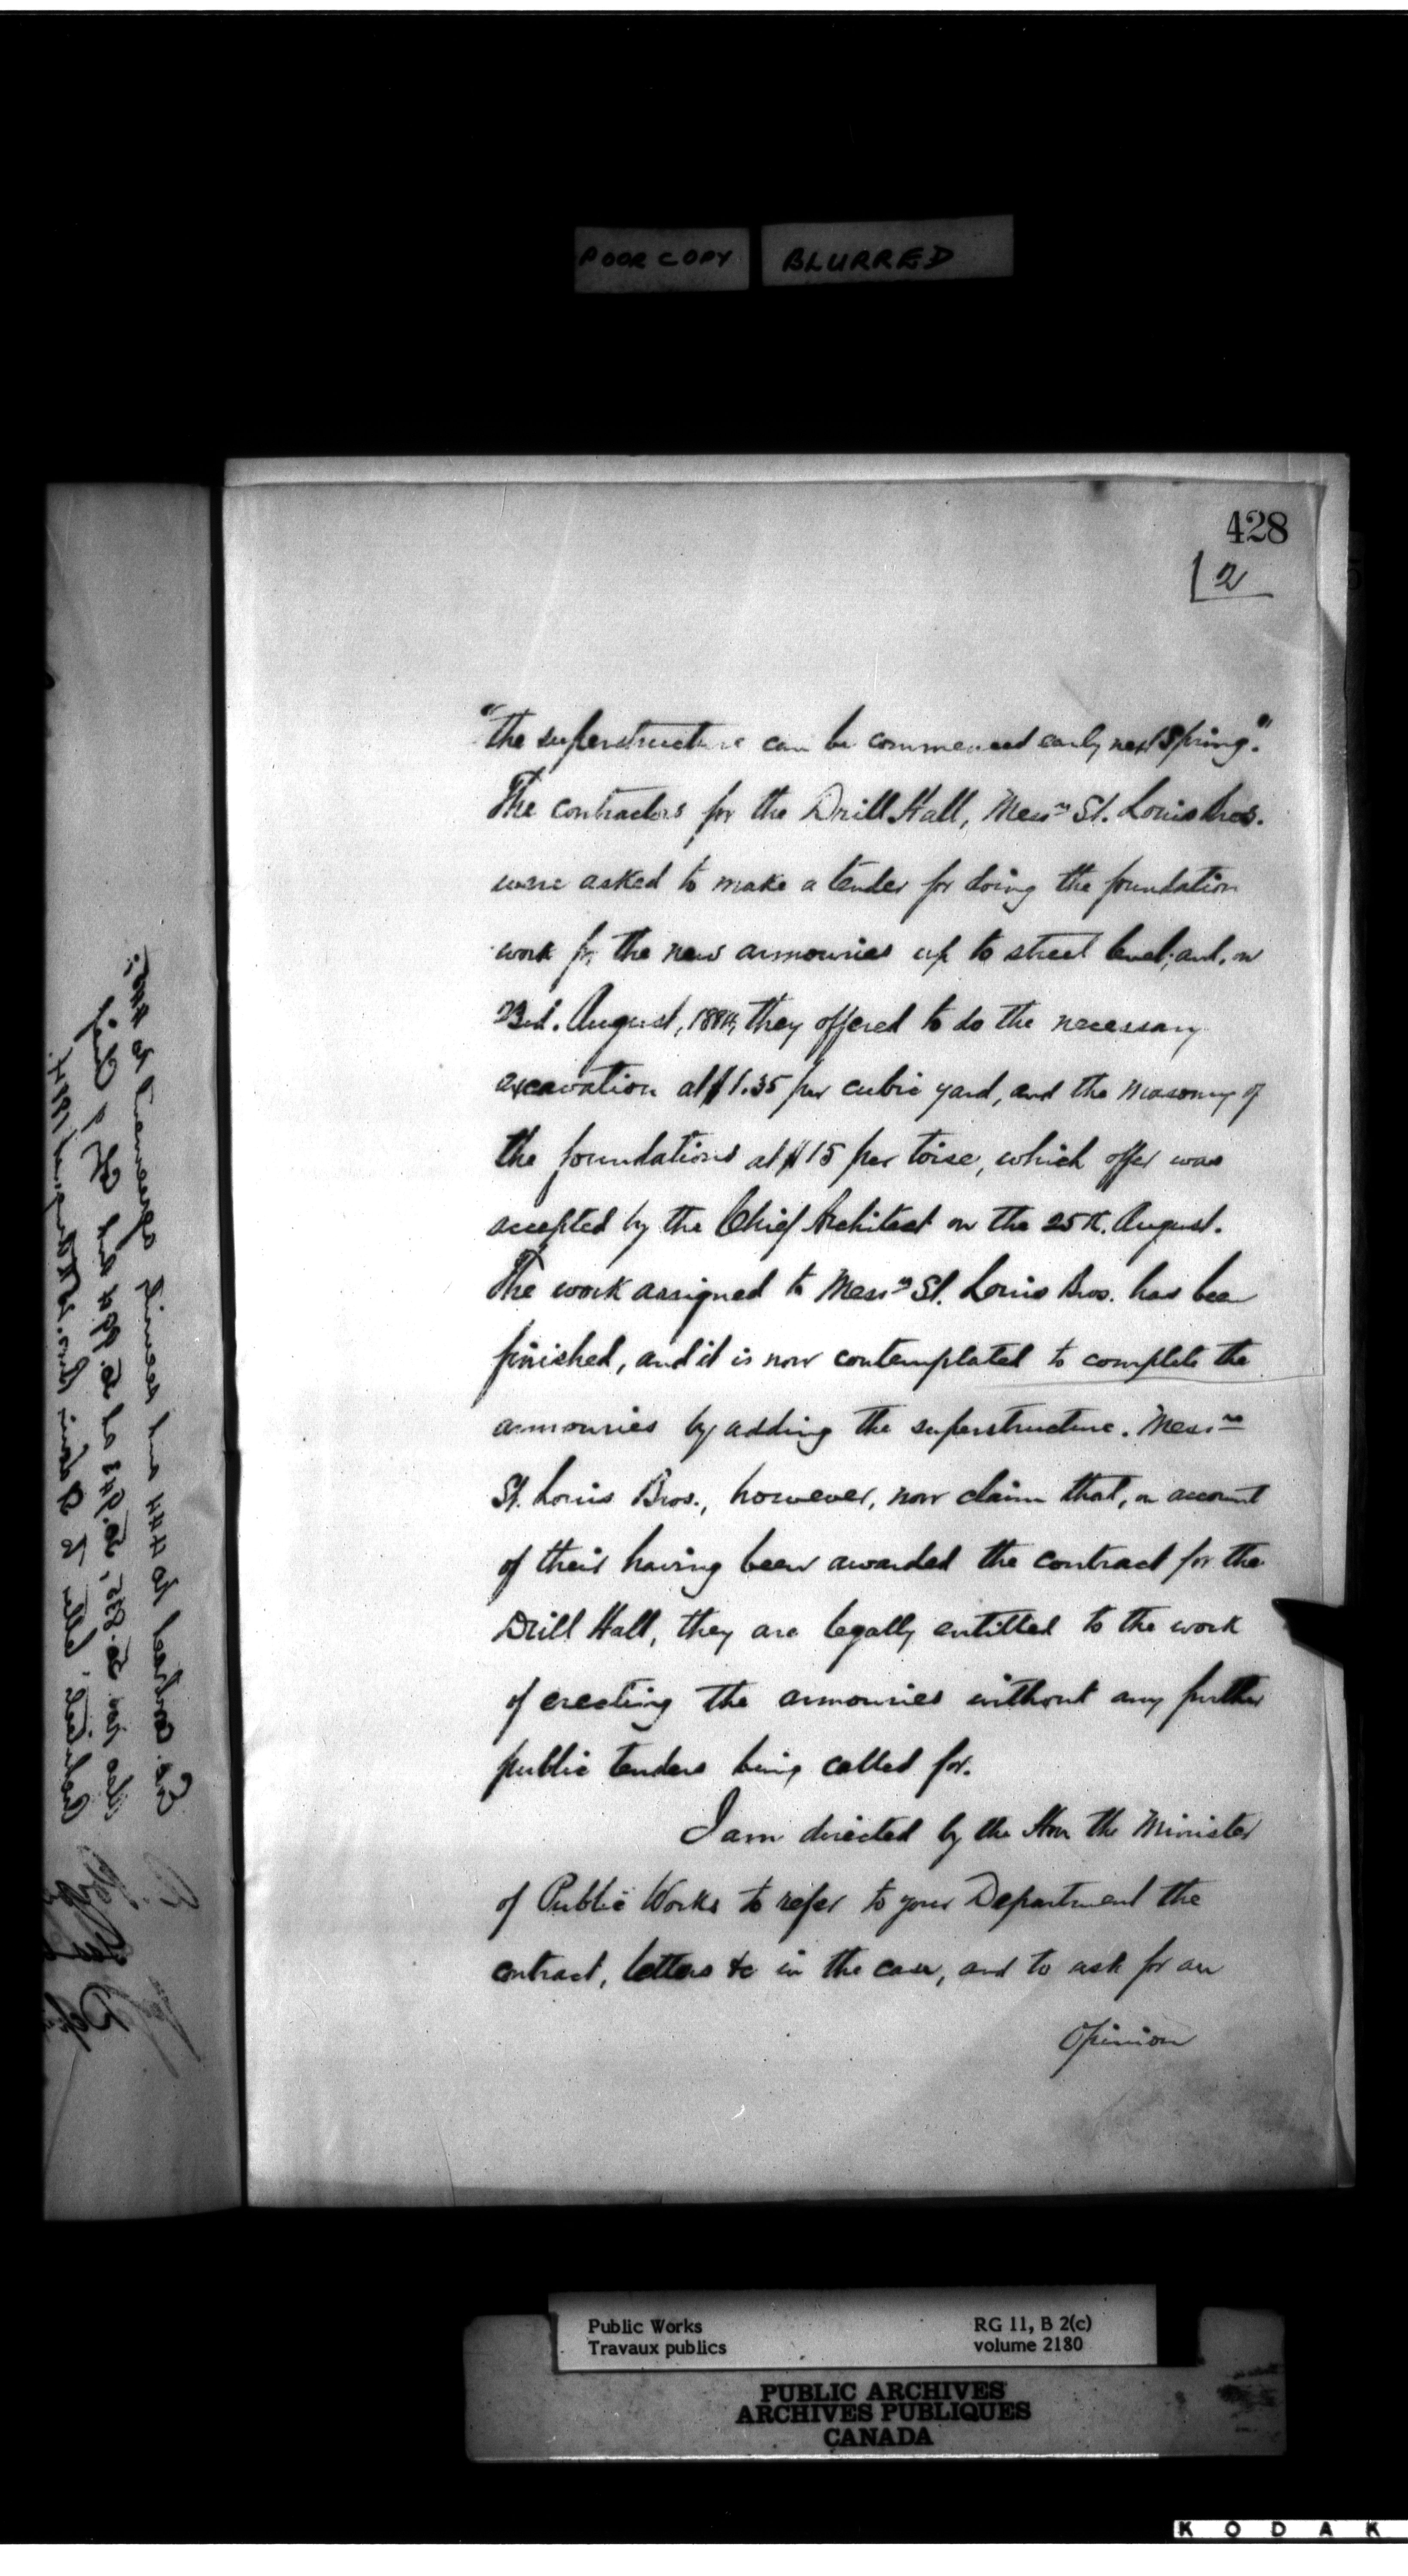 POOR COPY BLURRED
428
2
"the superstructure can be commenced early next Spring."
The contractors for the Drill Hall, Messrs St. Louis Bros.
were asked to make a tender for doing the foundation
work for the new armouries up to street level; and, on
23rd. August, 1884, they offered to do the necessary
excavation at $1.35 per cubic yard, and the masonry of
the foundations at $15 per toise, which offer was
accepted by the Chief Architect on the 25th. August.
The work assigned to Messrs St. Louis Bros. has been
finished, and it is now contemplated to complete the
armouries by adding the superstructure. Messrs
St. Louis Bros., however, now claim that, on account
of their having been awarded the contract for the
Drill Hall, they are legally entitled to the work
of erecting the armouries without any further
public tenders being called for.
I am directed by the Hon the Minister
of Public Works to refer to your Department the
contract, letters &c in the case, and to ask for an
Opinion
Enc. Contract No 444 and securing agreement No 445;
also nos. 50.836, 50.943 at 50.994 and Ct of Chief
Architect's letter to St Louis Bros. 25th August 1884.
Public Works
Travaux publics
RG 11, B 2(c)
volume 2180
PUBLIC ARCHIVES
ARCHIVES PUBLIQUES
CANADA
KODAK